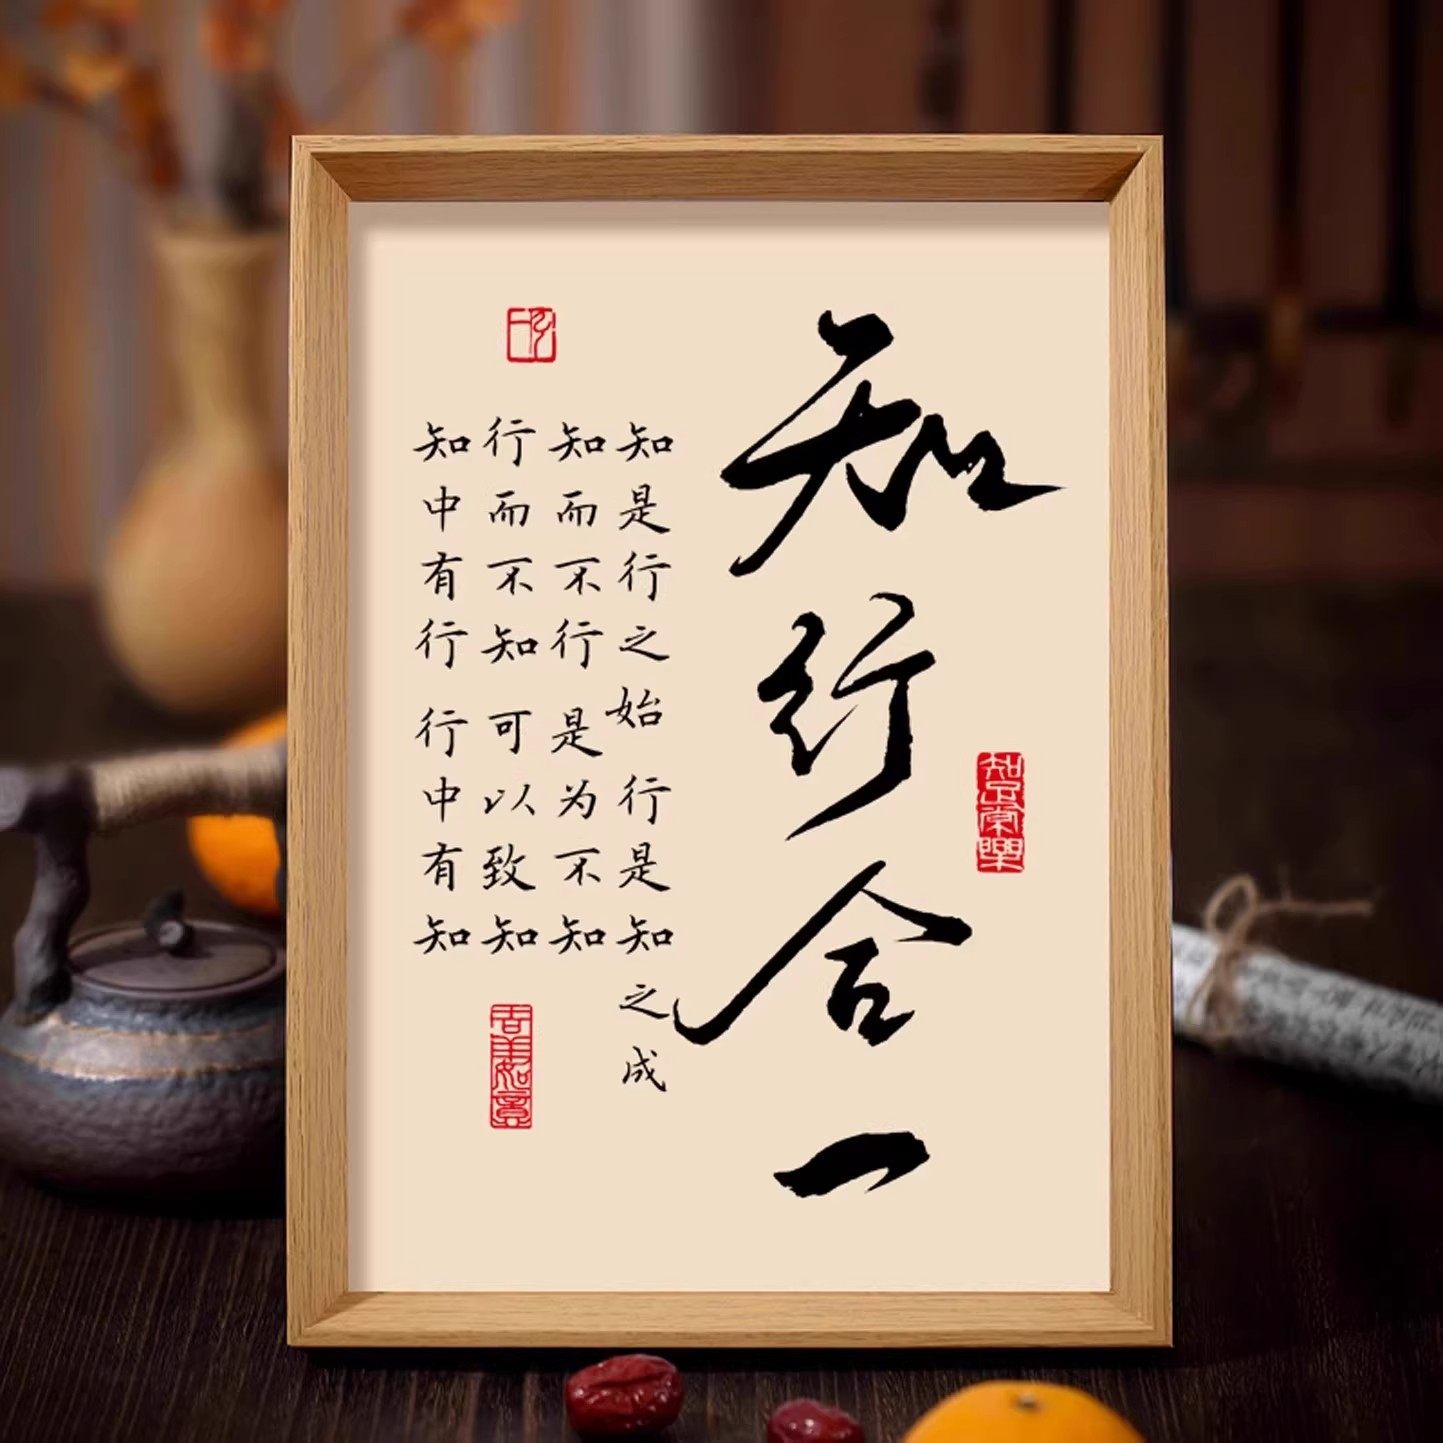 知行合一
知足常樂
知是行之始 行是知之成
知而不行 是为不知
行而不知 可以致知
知中有行 行中有知
吉祥如意